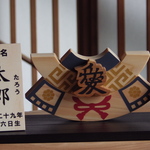 名
太郎
たろう
二十九年
六日生
愛